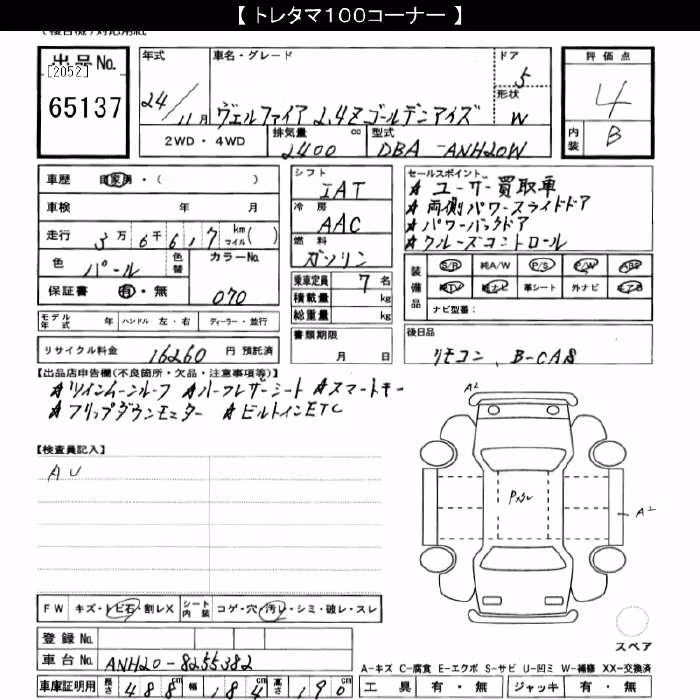 【 トレタマ100コーナー 】
出品No.
[2052]
65137
年式
24/11月
車名・グレード
ヴェルファイア 2.4Z ゴールデンアイズ
ドア
5
形状
W
評価点
4
内装
B
2WD・4WD
排気量
cc
2400
型式
DBA-ANH20W
車歴 自家用・( )
車検 年 月
走行 3万6千617 km マイル( )
色 パール 色替 カラーNo. 070
保証書 有・無
シフト
IAT
冷房
AAC
燃料
ガソリン
乗車定員 7名
積載量 kg
総重量 kg
書類期限
月 日
セールスポイント
★ユーザー買取車
★両側パワースライドドア
★パワーバックドア
★クルーズコントロール
装備品
S/R 純A/W P/S P/W ABS
純TV 純ナビ 革シート 外ナビ エアB
ナビ型番:
モデル年式 年 ハンドル 左・右 ディーラー・並行
リサイクル料金 16260 円 預託済
後日品
リモコン、B-CAS
【出品店申告欄(不良箇所・欠品・注意事項等)】
★ツインムーンルーフ ★ハーフレザーシート ★スマートキー
★フリップダウンモニター ★ビルトインETC
【検査員記入】
AU
A1
A1
FW キズ・トビ石・割レX シート内装 コゲ・穴・汚レ・シミ・破レ・スレ
登録No.
車台No. ANH20-8255382
スペア
A-キズ C-腐食 E-エクボ S-サビ U-凹ミ W-補修 XX-交換済
車庫証明用 長さ 488cm 幅 184cm 高さ 190cm
工具 有・無 ジャッキ 有・無